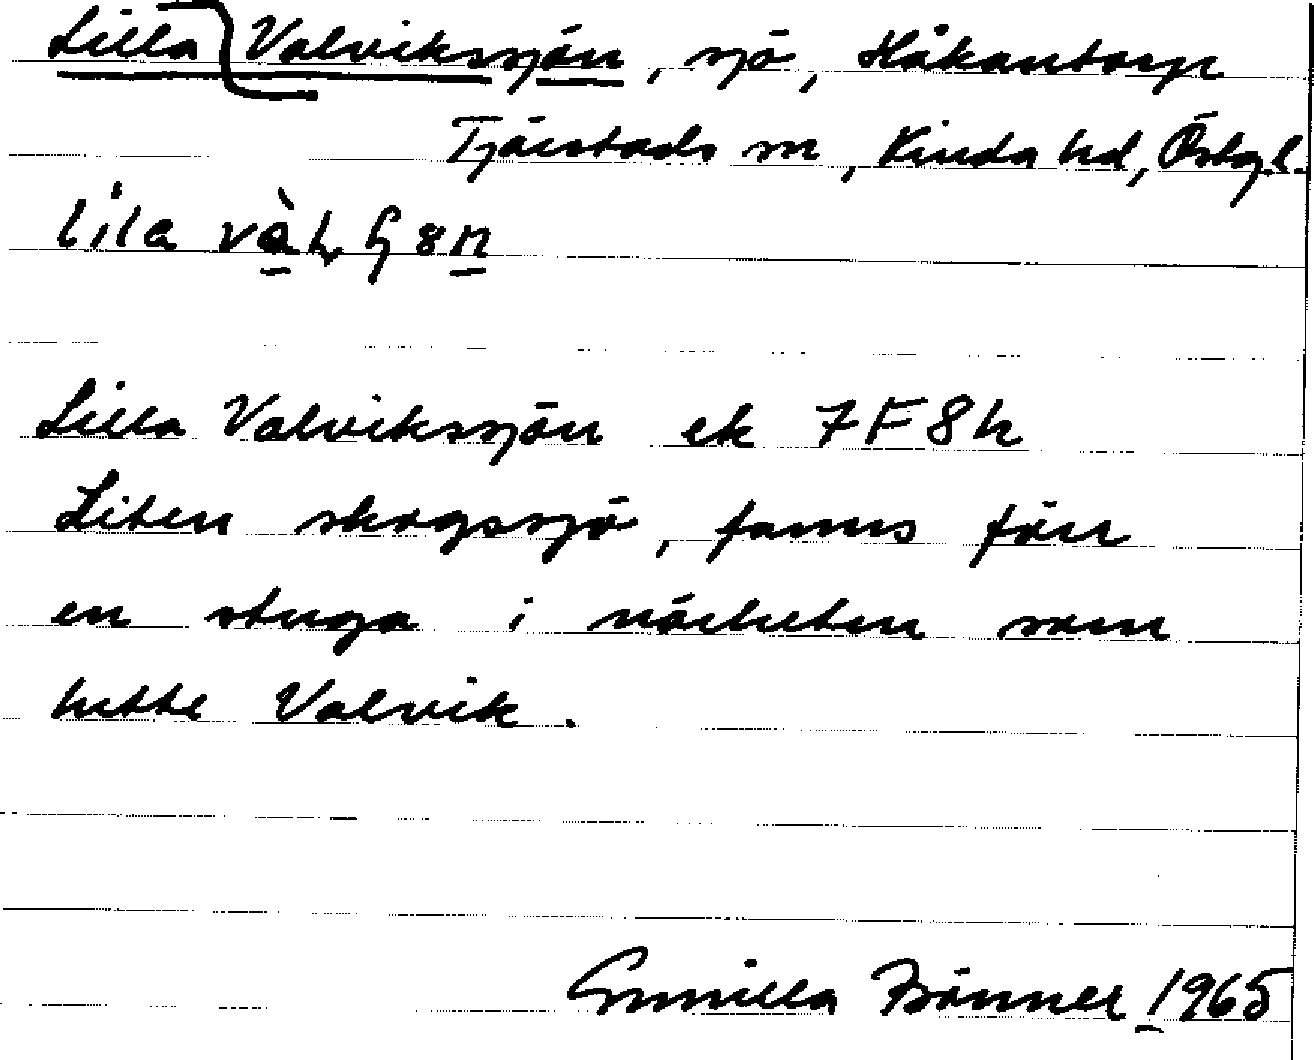 Lilla Valvikssjön, sjö, Håkantorp
Tjärstads sn, Kinda hd, Östgl.
lila
Lilla Valvikssjön ek 7F8h
Liten skogssjö, fanns förr
en stuga i närheten som
hette Valvik.
Gunilla 1965